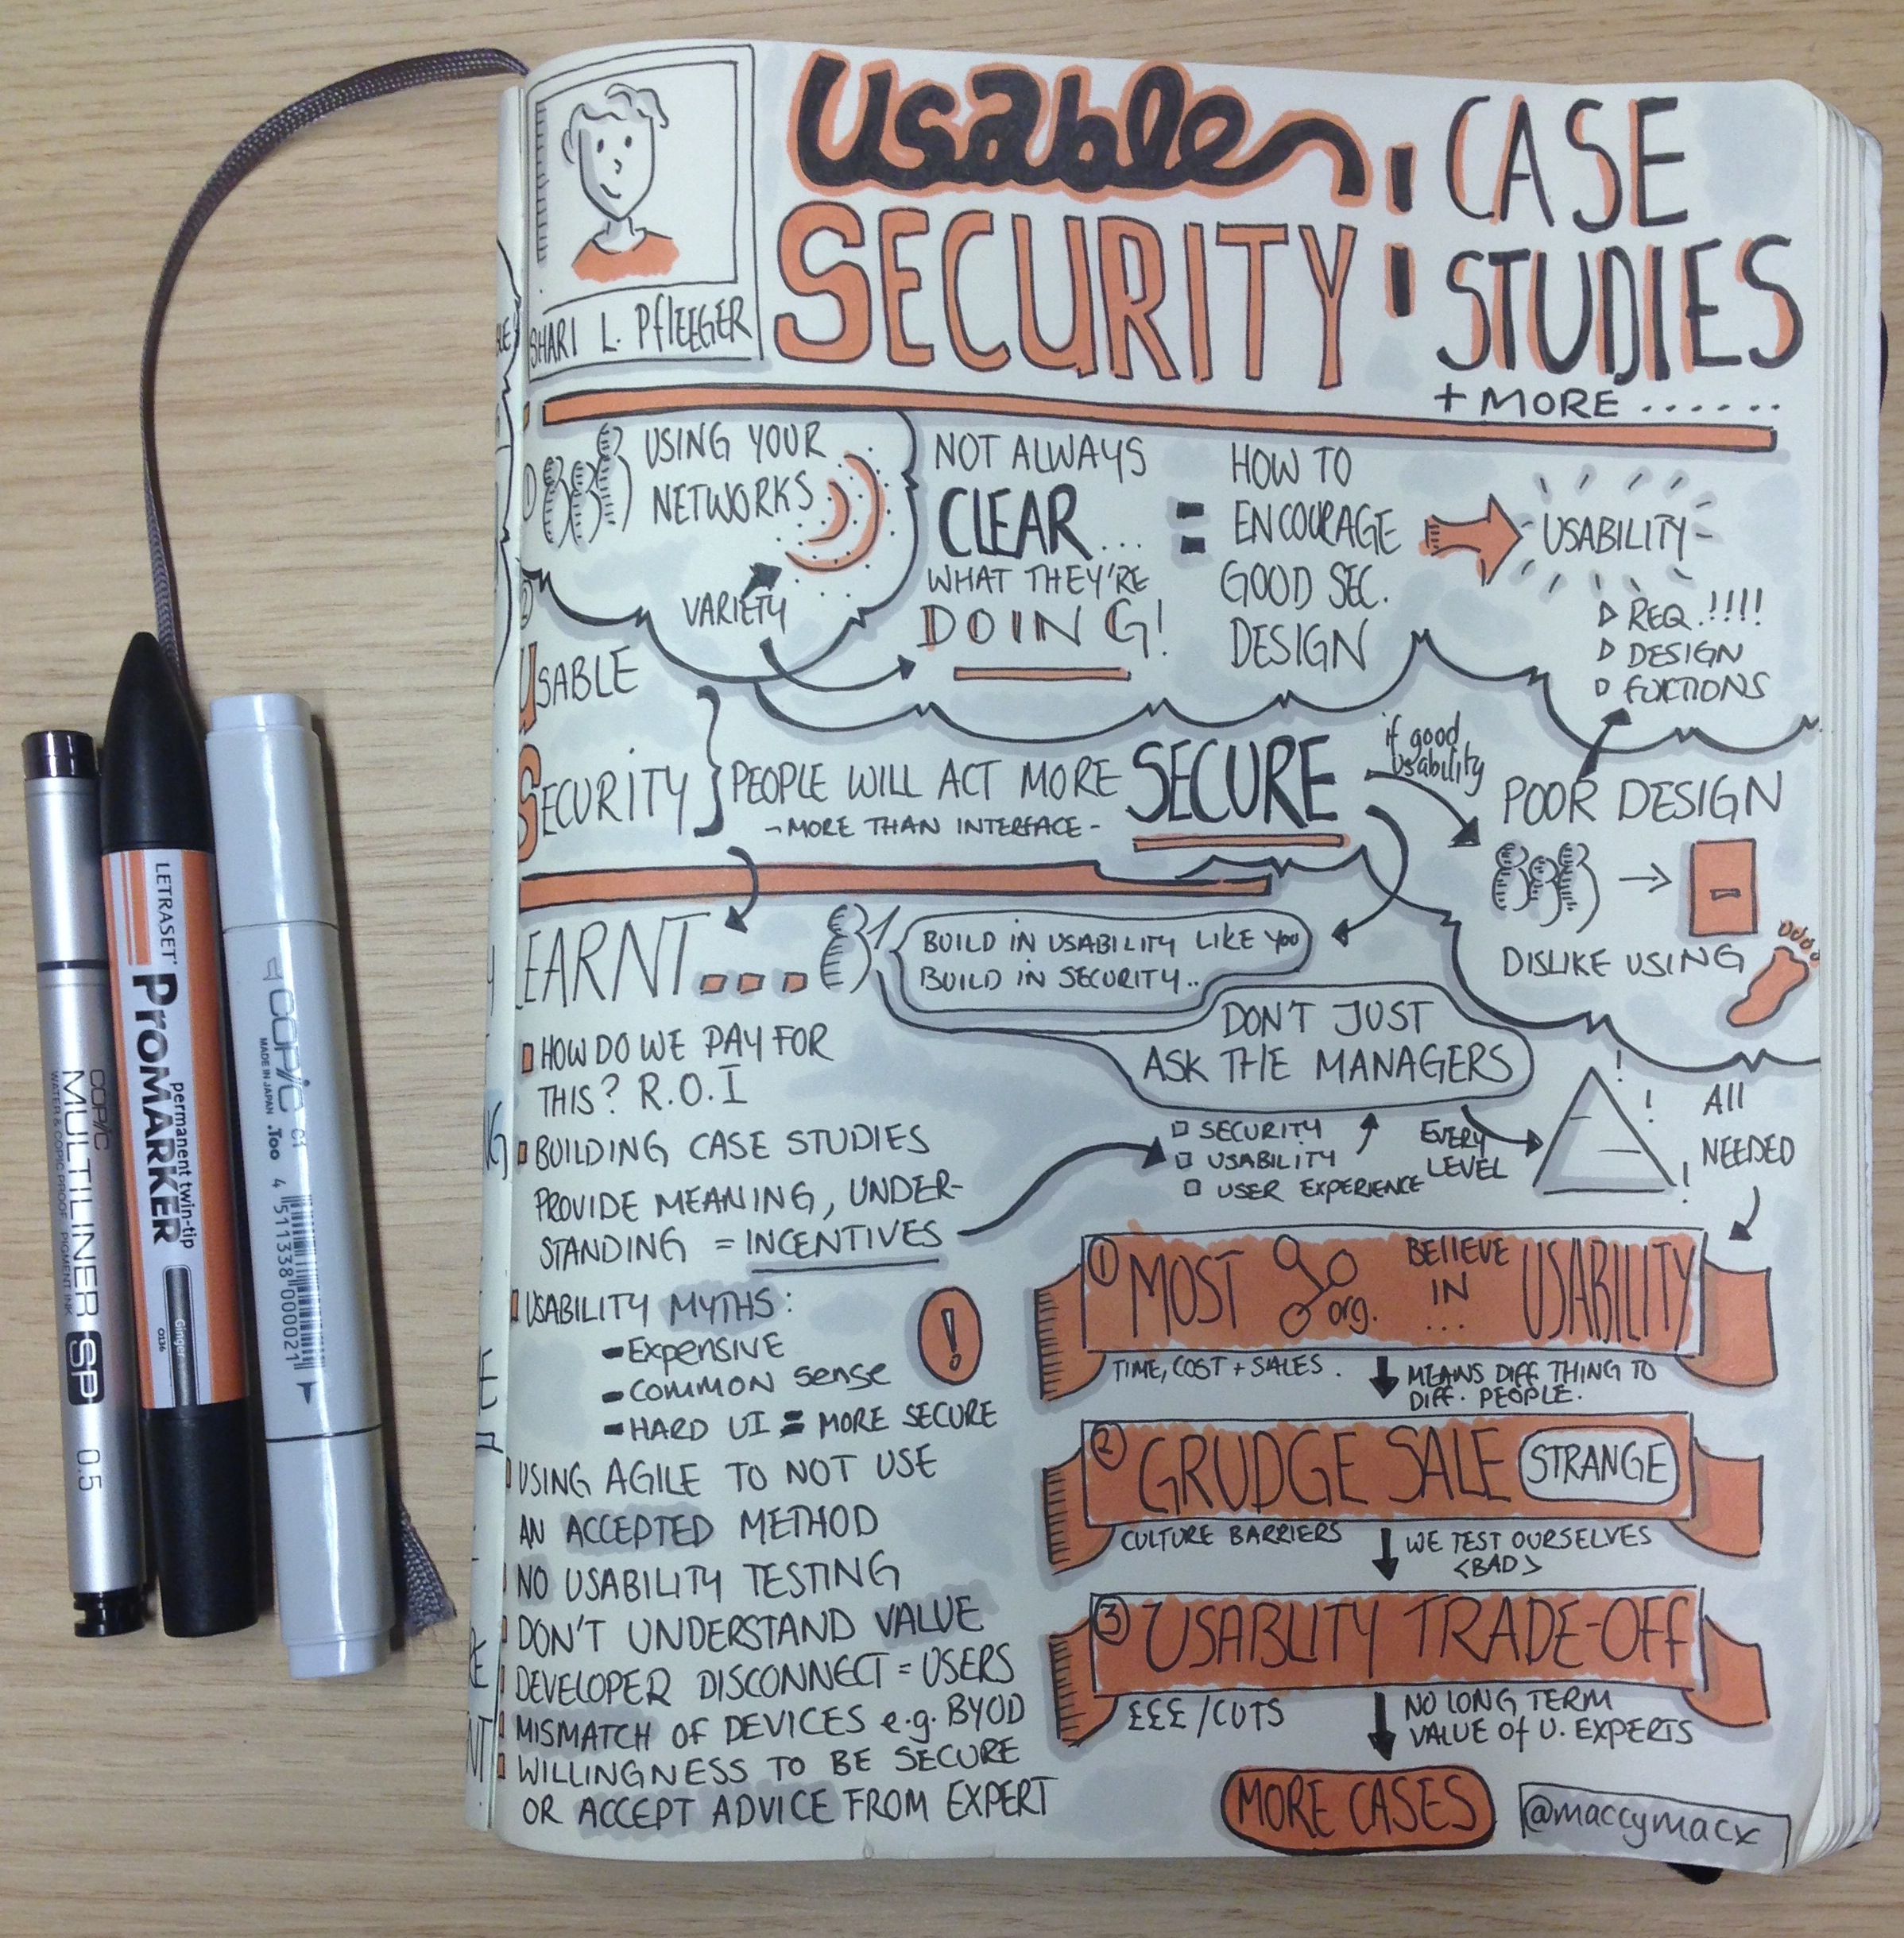 Usable
SECURITY
: CASE
STUDIES
+ MORE ......
SHARI L. PFlEEGER
①
USING YOUR
NETWORKS
VARIETY
②
NOT ALWAYS
CLEAR...
WHAT THEY'RE
DOING!
=
HOW TO
ENCOURAGE
GOOD SEC.
DESIGN
USABILITY
REQ.!!!!
DESIGN
FUCTIONS
USABLE
SECURITY
PEOPLE WILL ACT MORE SECURE
- MORE THAN INTERFACE -
if good
usability
POOR DESIGN
DISLIKE USING
LEARNT...
BUILD IN USABILITY LIKE YOU
BUILD IN SECURITY..
DON'T JUST
ASK THE MANAGERS
SECURITY
USABILITY
USER EXPERIENCE
EVERY
LEVEL
! ! !
All
NEEDED
HOW DO WE PAY FOR
THIS? R.O.I
BUILDING CASE STUDIES
PROVIDE MEANING, UNDER-
STANDING = INCENTIVES
USABILITY MYTHS:
- Expensive
- COMMON sense
- HARD UI = MORE SECURE
!
USING AGILE TO NOT USE
AN ACCEPTED METHOD
NO USABILITY TESTING
DON'T UNDERSTAND VALUE
DEVELOPER DISCONNECT = USERS
MISMATCH OF DEVICES e.g. BYOD
WILLINGNESS TO BE SECURE
OR ACCEPT ADVICE FROM EXPERT
① MOST org. BElIEVE IN ... USABILITY
TIME, COST + SALES.
MEANS DIFF THING TO
DIFF. PEOPLE.
② GRUDGE SALE STRANGE
CULTURE BARRIERS
WE TEST OURSELVES
<BAD>
③ USABLITY TRADE-OFF
£££ / CUTS
NO LONG TERM
VALUE Of U. EXPERTS
MORE CASES
@maccymacx
COPIC
MULTILINER SP 0.5
WATER & COPIC PROOF PIGMENT INK
LETRASET
PROMARKER
permanent twin-tip
Ginger
O136
COPIC
MADE IN JAPAN .Too
C1
4 511338 000021